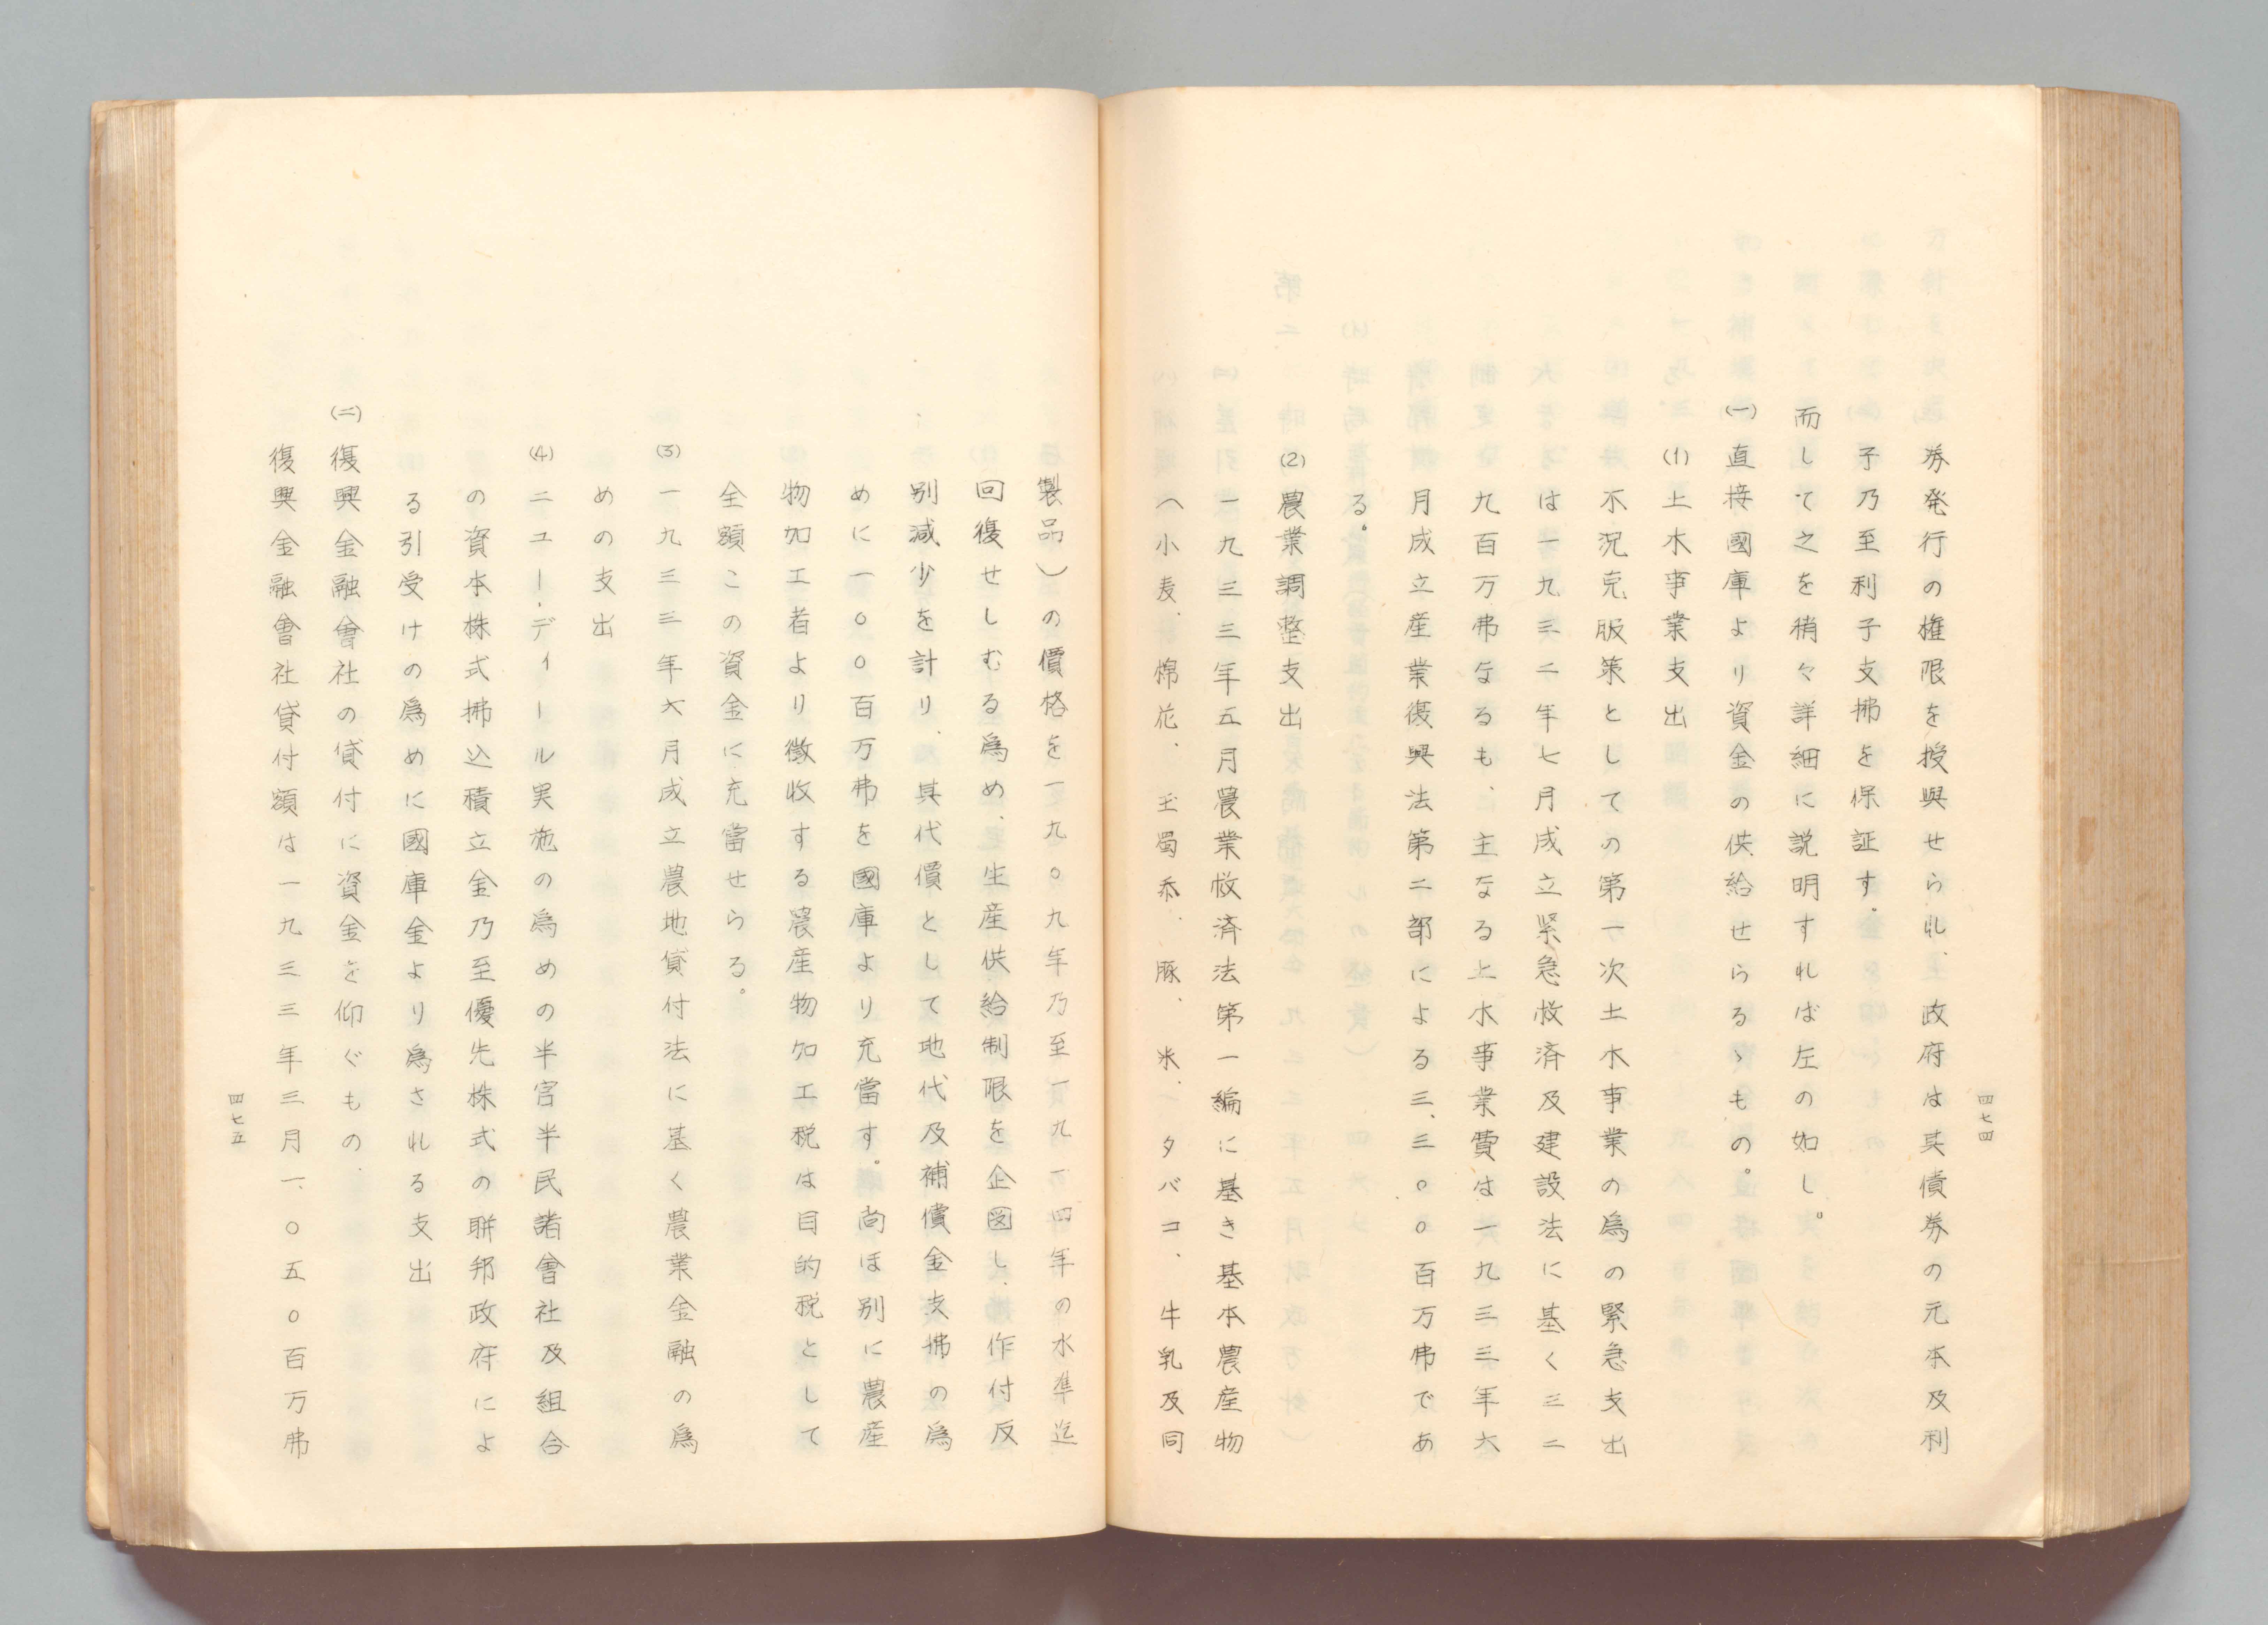 四七四
券発行の権限を授與せられ、政府は其債券の元本及利
子乃至利子支拂を保証す。
而して之を稍々詳細に説明すれば左の如し。
(一)直接國庫より資金の供給せらるゝもの。
(1)土木事業支出
不況克服策としての第一次土木事業の爲の緊急支出
は一九三二年七月成立緊急救済及建設法に基く三二
九百万弗なるも、主なる土木事業費は一九三三年六
月成立産業復興法第二部による三、三〇〇百万弗であ
る。
(2)農業調整支出
一九三三年五月農業救済法第一編に基き基本農産物
(小麦、棉花、玉蜀黍、豚、米、タバコ、牛乳及同
製品)の價格を一九〇九年乃至一九一四年の水準迄
回復せしむる爲め、生産供給制限を企図し、作付反
別減少を計り、其代價として地代及補償金支拂の爲
めに一〇〇百万弗を國庫より充當す。尚ほ別に農産
物加工者より徴收する農産物加工税は目的税として
全額この資金に充當せらる。
(3)一九三三年六月成立農地貸付法に基く農業金融の爲
めの支出
(4)ニユー・ディール実施の爲めの半官半民諸會社及組合
の資本株式拂込積立金乃至優先株式の聯邦政府によ
る引受けの爲めに國庫金より爲される支出
(二)復興金融會社の貸付に資金を仰ぐもの、
復興金融會社貸付額は一九三三年三月一、〇五〇百万弗
四七五